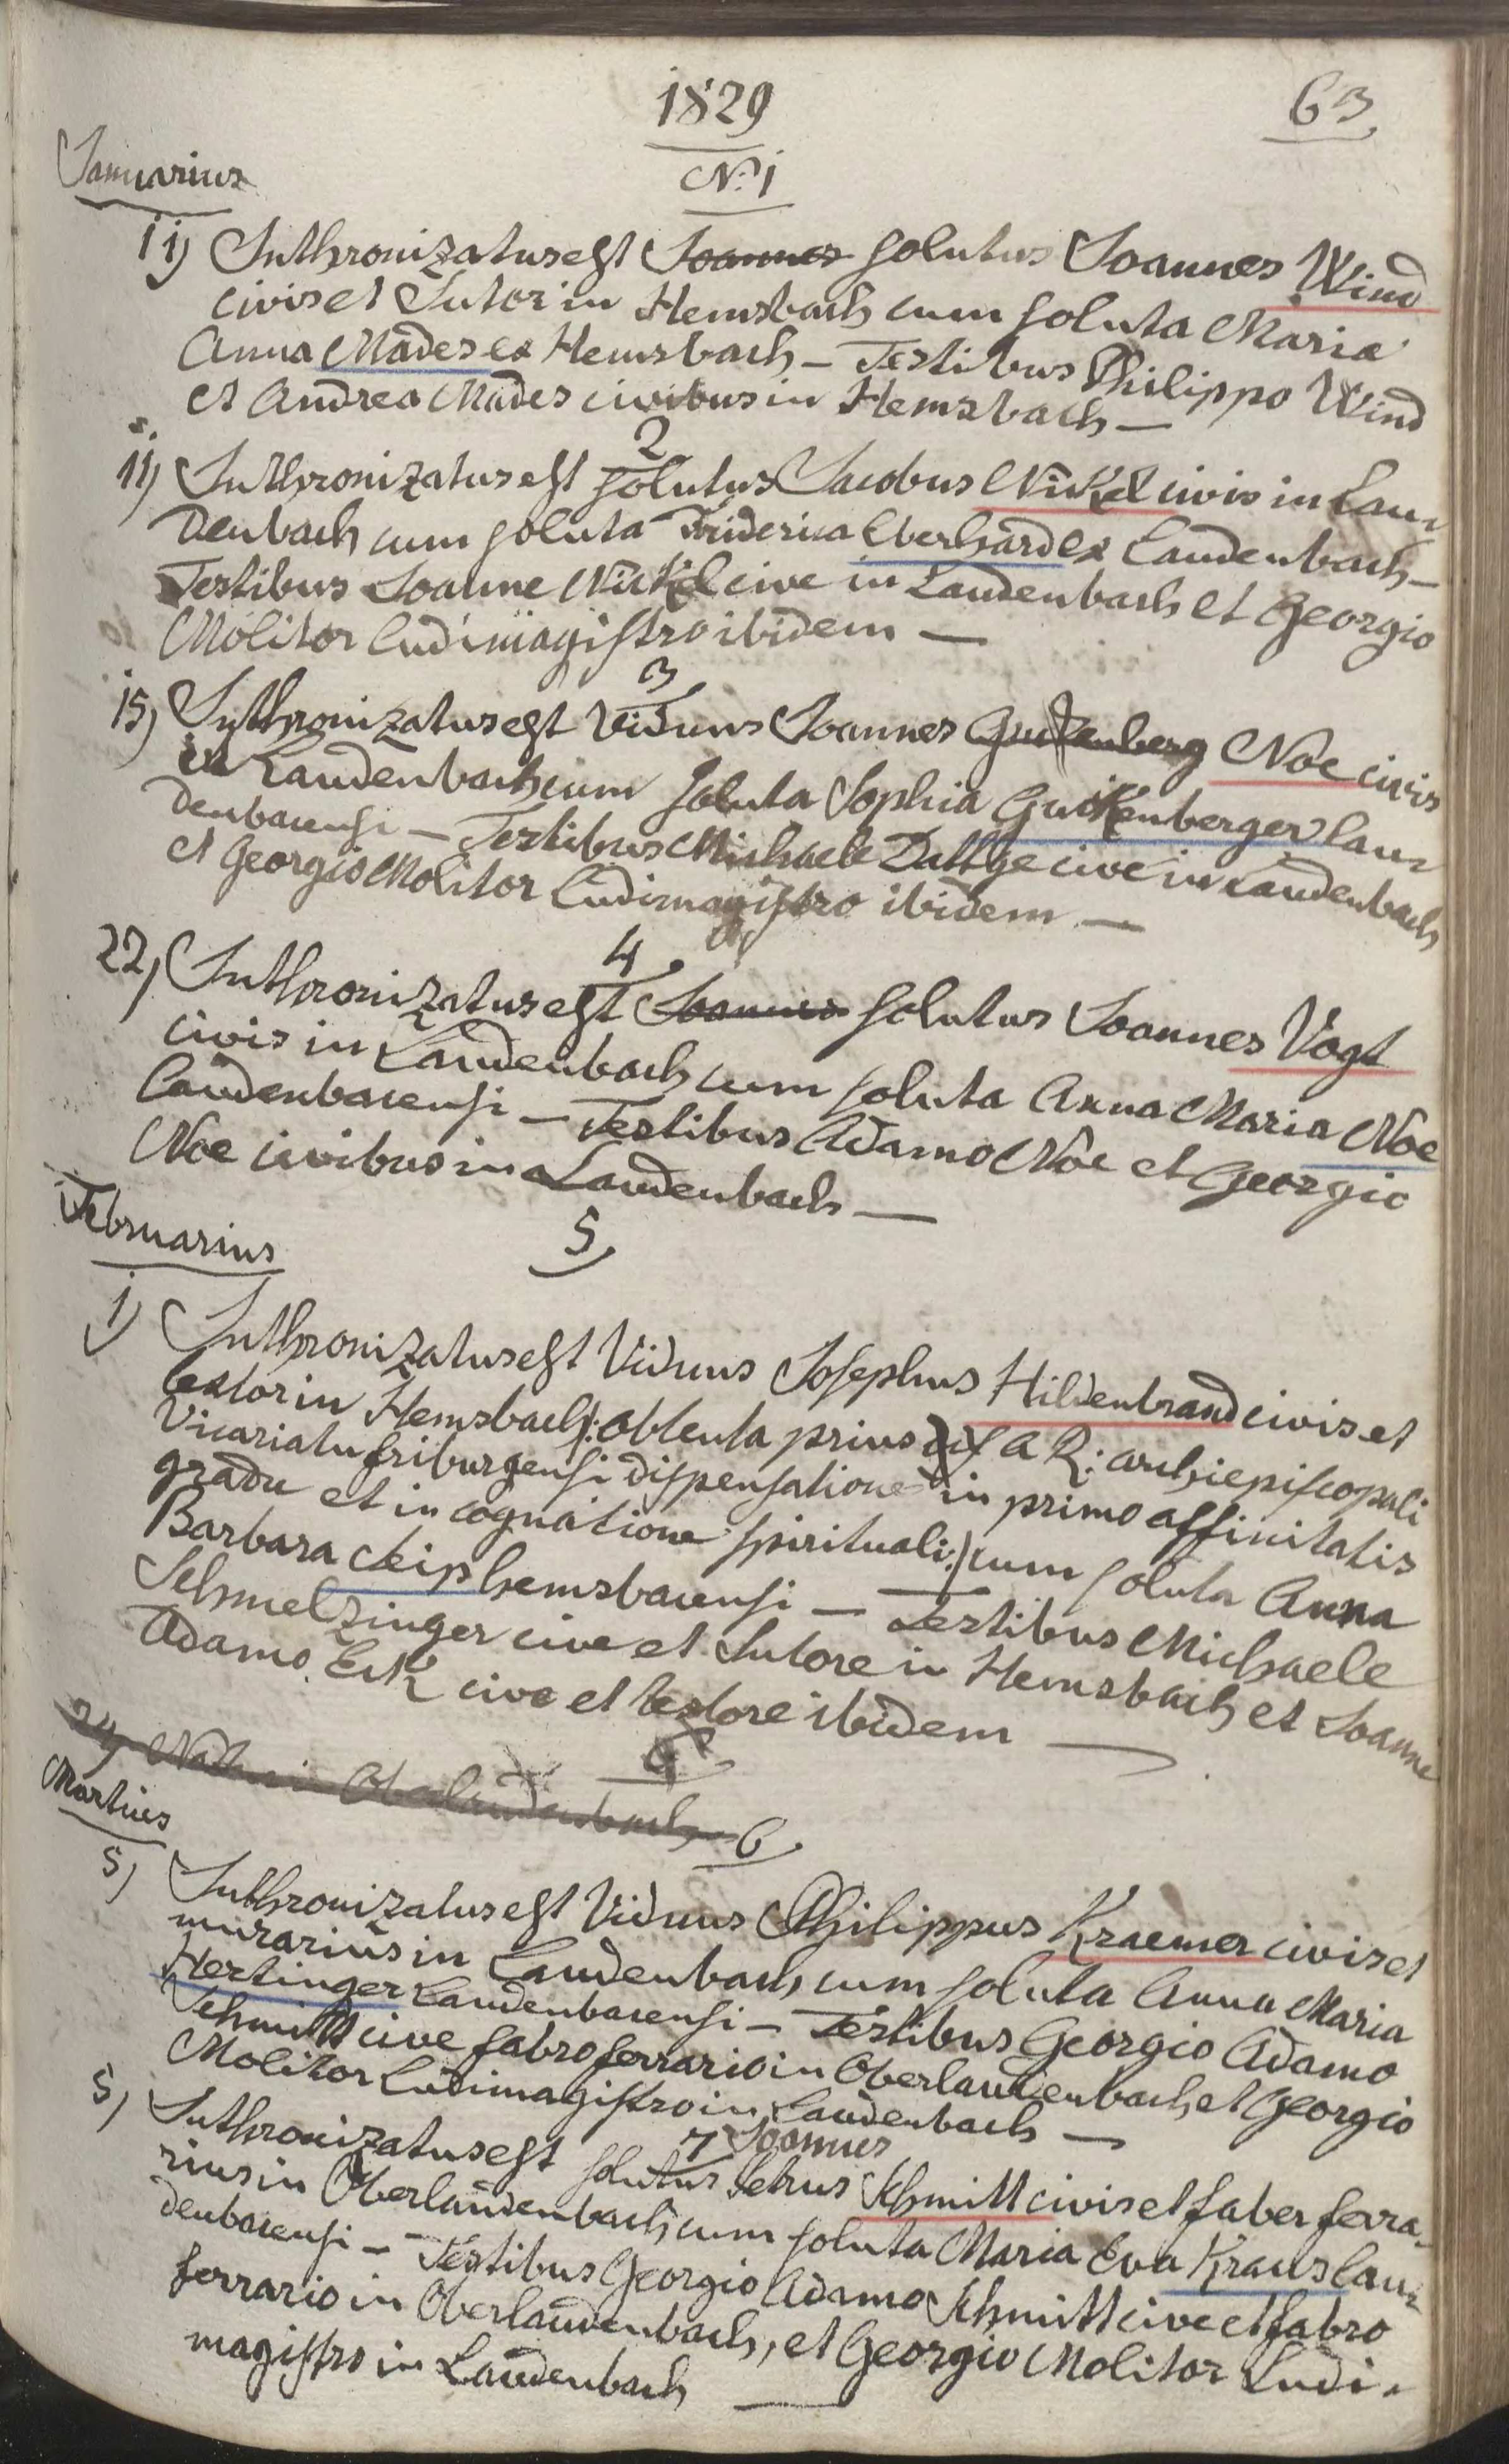 1829
63
Januarius
N: 1
11) Inthronizatus est Joannes solutus Joannes Wind
civis et Sutor in Hemsbach cum soluta Maria
Anna Mades ex Hemsbach – Testibus Philippo Wind
et Andrea Mades civibus in Hemsbach –
2
11) Inthronizatus est solutus Jacobus Nickel civis in Lau=
denbach cum soluta Friderica Eberhard ex Laudenbach –
Testibus Joanne Nickel cive in Laudenbach et Georgio
Molitor Ludimagistro ibidem –
3
15) Inthronizatus est Viduus Joannes Noe civis
in Laudenbach cum soluta Sophia Guckenberger lau=
denbacensi – Testibus Michaele Dattge cive in Laudenbach
et Georgio Molitor Ludimagistro ibidem –
4
22) Inthronizatus est Joannes solutus Joannes Vogt
civis in Laudenbach cum soluta Anna Maria Noe
laudenbacensi – Testibus Adamo Noe et Georgio
Noe civibus in Laudenbach –
Februarius
5
1) Inthronizatus est Viduus Josephus Hildenbrand civis et
textor in Hemsbach /: obtenta prius a R: archiepiscopali
Vicariatu friburgensi dispensatione in primo affinitatis
gradu et in cognatione spirituali :/ cum soluta Anna
Barbara Leip hemsbacensi – Testibus Michaele
Schmelzinger cive et Sutore in Hemsbach et Joanne
Adamo Eck cive et textore ibidem –
6
24 Oberlaudenbach
Martius
6
5) Inthronizatus est Viduus Philippus Kraemer civis et
murarius in Laudenbach cum soluta Anna Maria
Hertinger Laudenbacensi – Testibus Georgio Adamo
Schmitt cive fabro ferrario in Oberlaudenbach, et Georgio
Molitor Ludimagistro in Laudenbach –
7 Joannes
5) Inthronizatus est solutus Petrus Schmitt civis et faber ferra=
rius in Oberlaudenbach cum soluta Maria Eva Kraus lau=
denbacensi – Testibus Georgio Adamo Schmitt cive et fabro
ferrario in Oberlaudenbach, et Georgio Molitor Ludi=
magistro in Laudenbach –